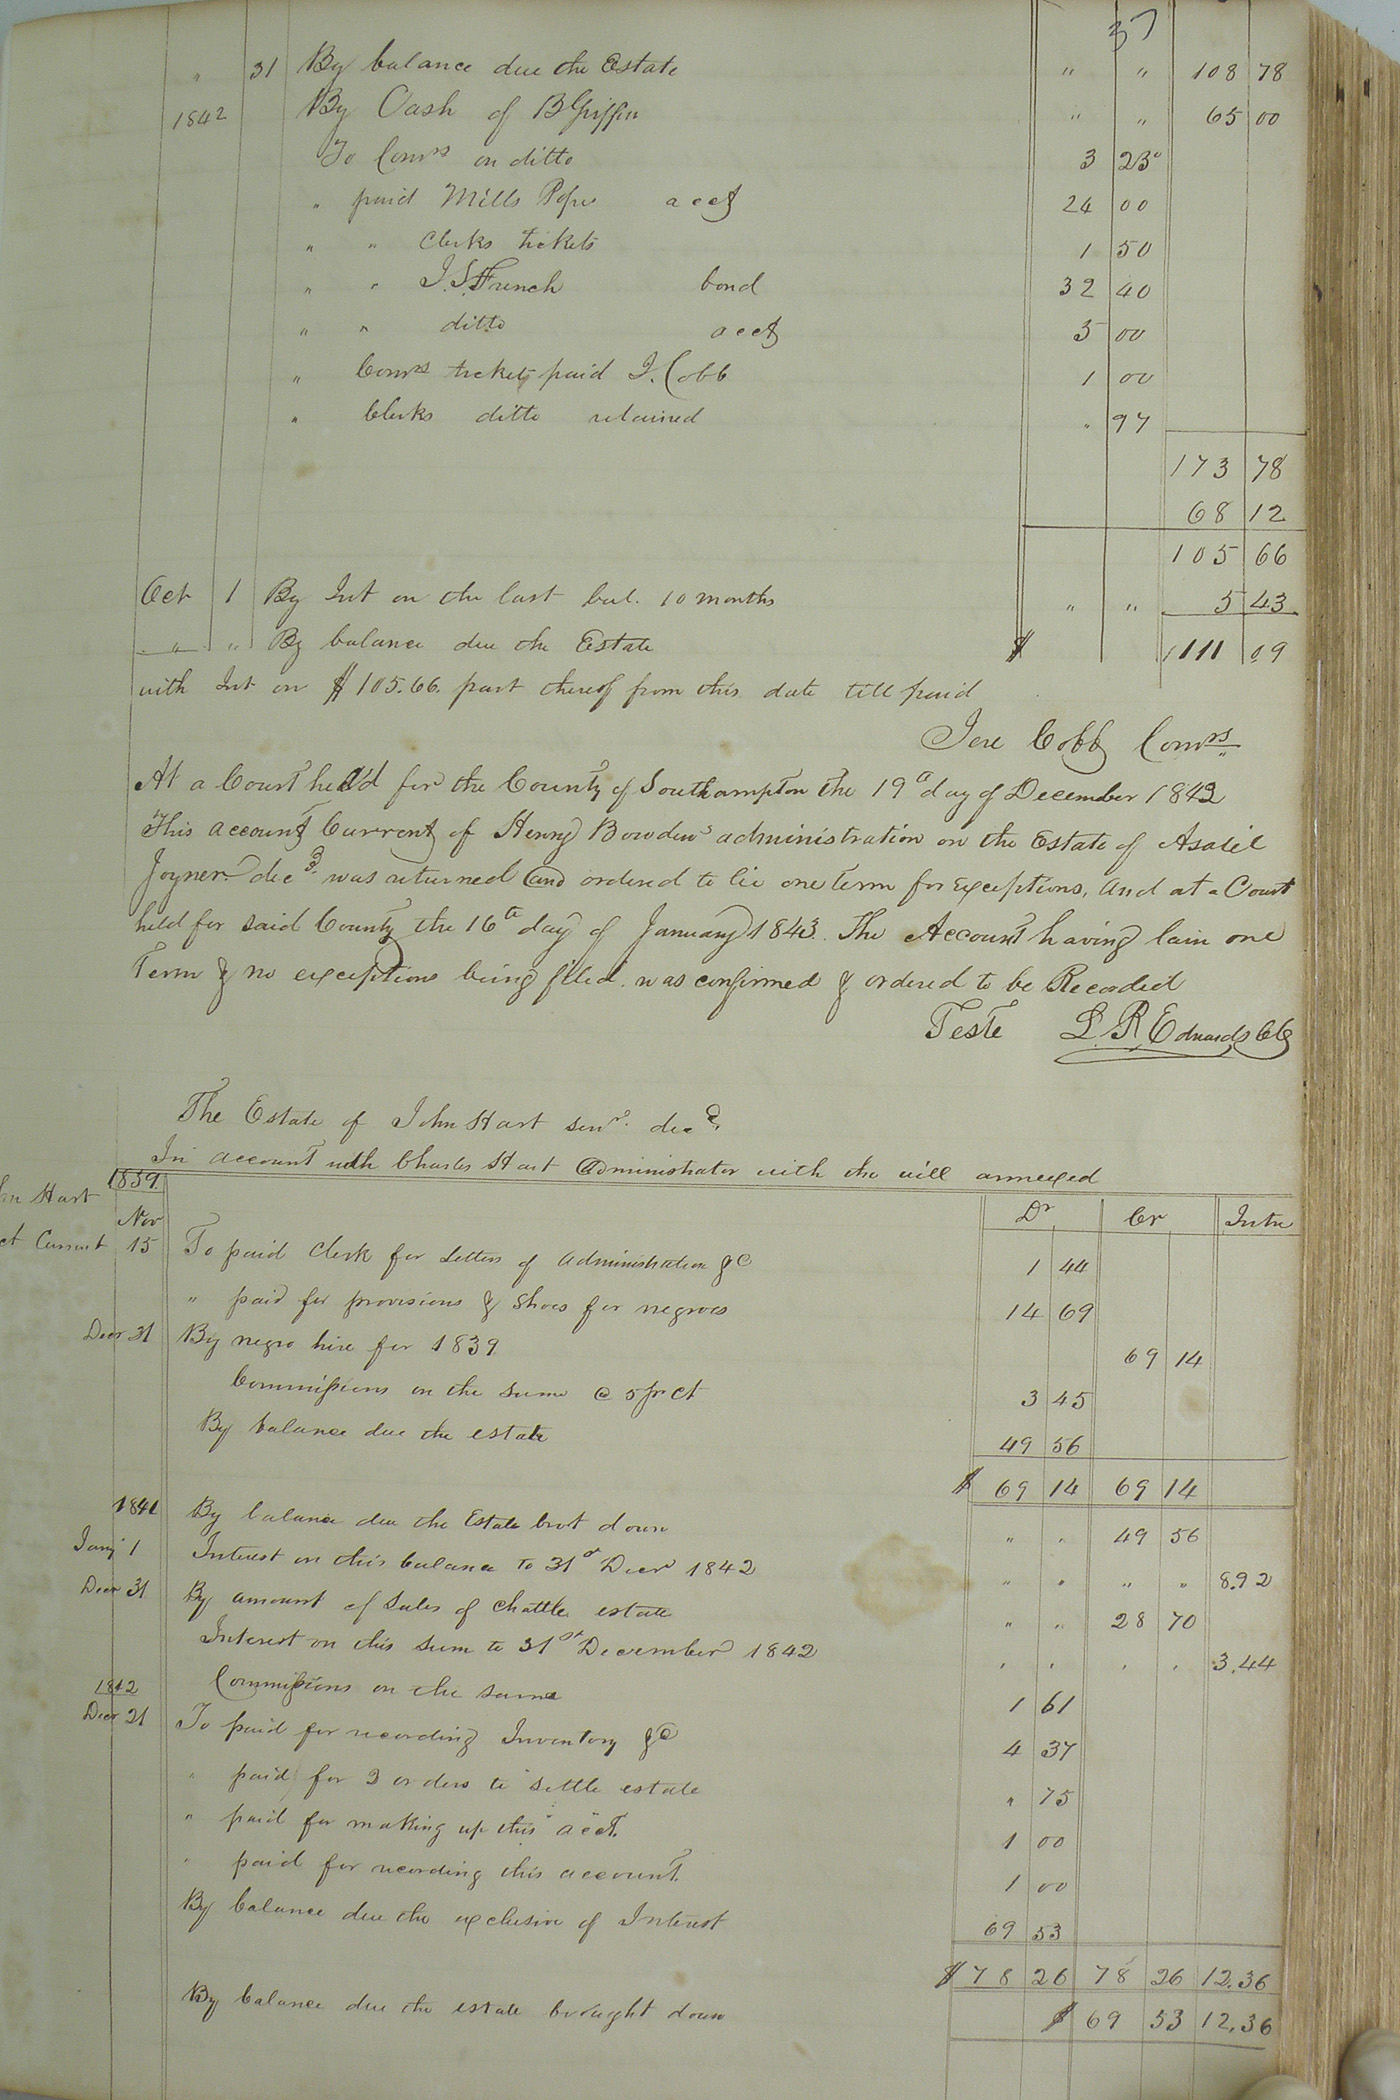 37
" 31 By balance due the Estate " " 108 78
1842 By Cash of B Griffin " " 65 00
To Comrs on ditto 3 25
" paid Mills Pope acct 24 00
" " Clerks tickets 1 50
" " J. S. French bond 32 40
" " ditto acct 5 00
" Comrs tickets paid J. Cobb 1 00
" Clerks ditto retained " 97
173 78
68 12
105 66
Oct 1 By Int on the last bal. 10 months " " 5 43
" " By balance due the Estate $ 111 09
with Int on $105.66. part thereof from this date till paid
Jere Cobb Comrs
At a Court held for the County of Southampton the 19th day of December 1842
This account Current of Henry Bowdens administration on the Estate of Asahel
Joyner decd was returned and ordered to lie one term for exceptions, and at a Court
held for said County the 16th day of January 1843. The Account having lain one
Term & no exceptions being filed. was confirmed & ordered to be Recorded
Teste L. R. Edwards CC
The Estate of John Hart senr. decd.
In account with Charles Hart Administrator with the will annexed
1839. Dr Cr Intr
Hart Nov
Current 15 To paid Clerk for Letters of administration &c 1 44
" paid for provisions & shoes for negroes 14 69
Decr 31 By negro hire for 1839. 69 14
Commissions on the same @ 5 pr ct 3 45
By balance due the estate 49 56
$ 69 14 69 14
1841 By balance due the Estate brot down " " 49 56
Jany 1 Interest on this balance to 31st Decr 1842 " " " " 8.92
Decr 31 By amount of sales of chattle estate " " 28 70
Interest on this sum to 31st December 1842 " " " " 3.44
1842 Commissions on the same 1 61
Decr 21 To paid for recording Inventory &c 4 37
" paid for 3 orders to settle estate " 75
" paid for making up this acct. 1 00
" paid for recording this account. 1 00
By balance due the exclusive of Interest 69 53
$78 26 78 26 12.36
By balance due the estate brought down $ 69 53 12.36